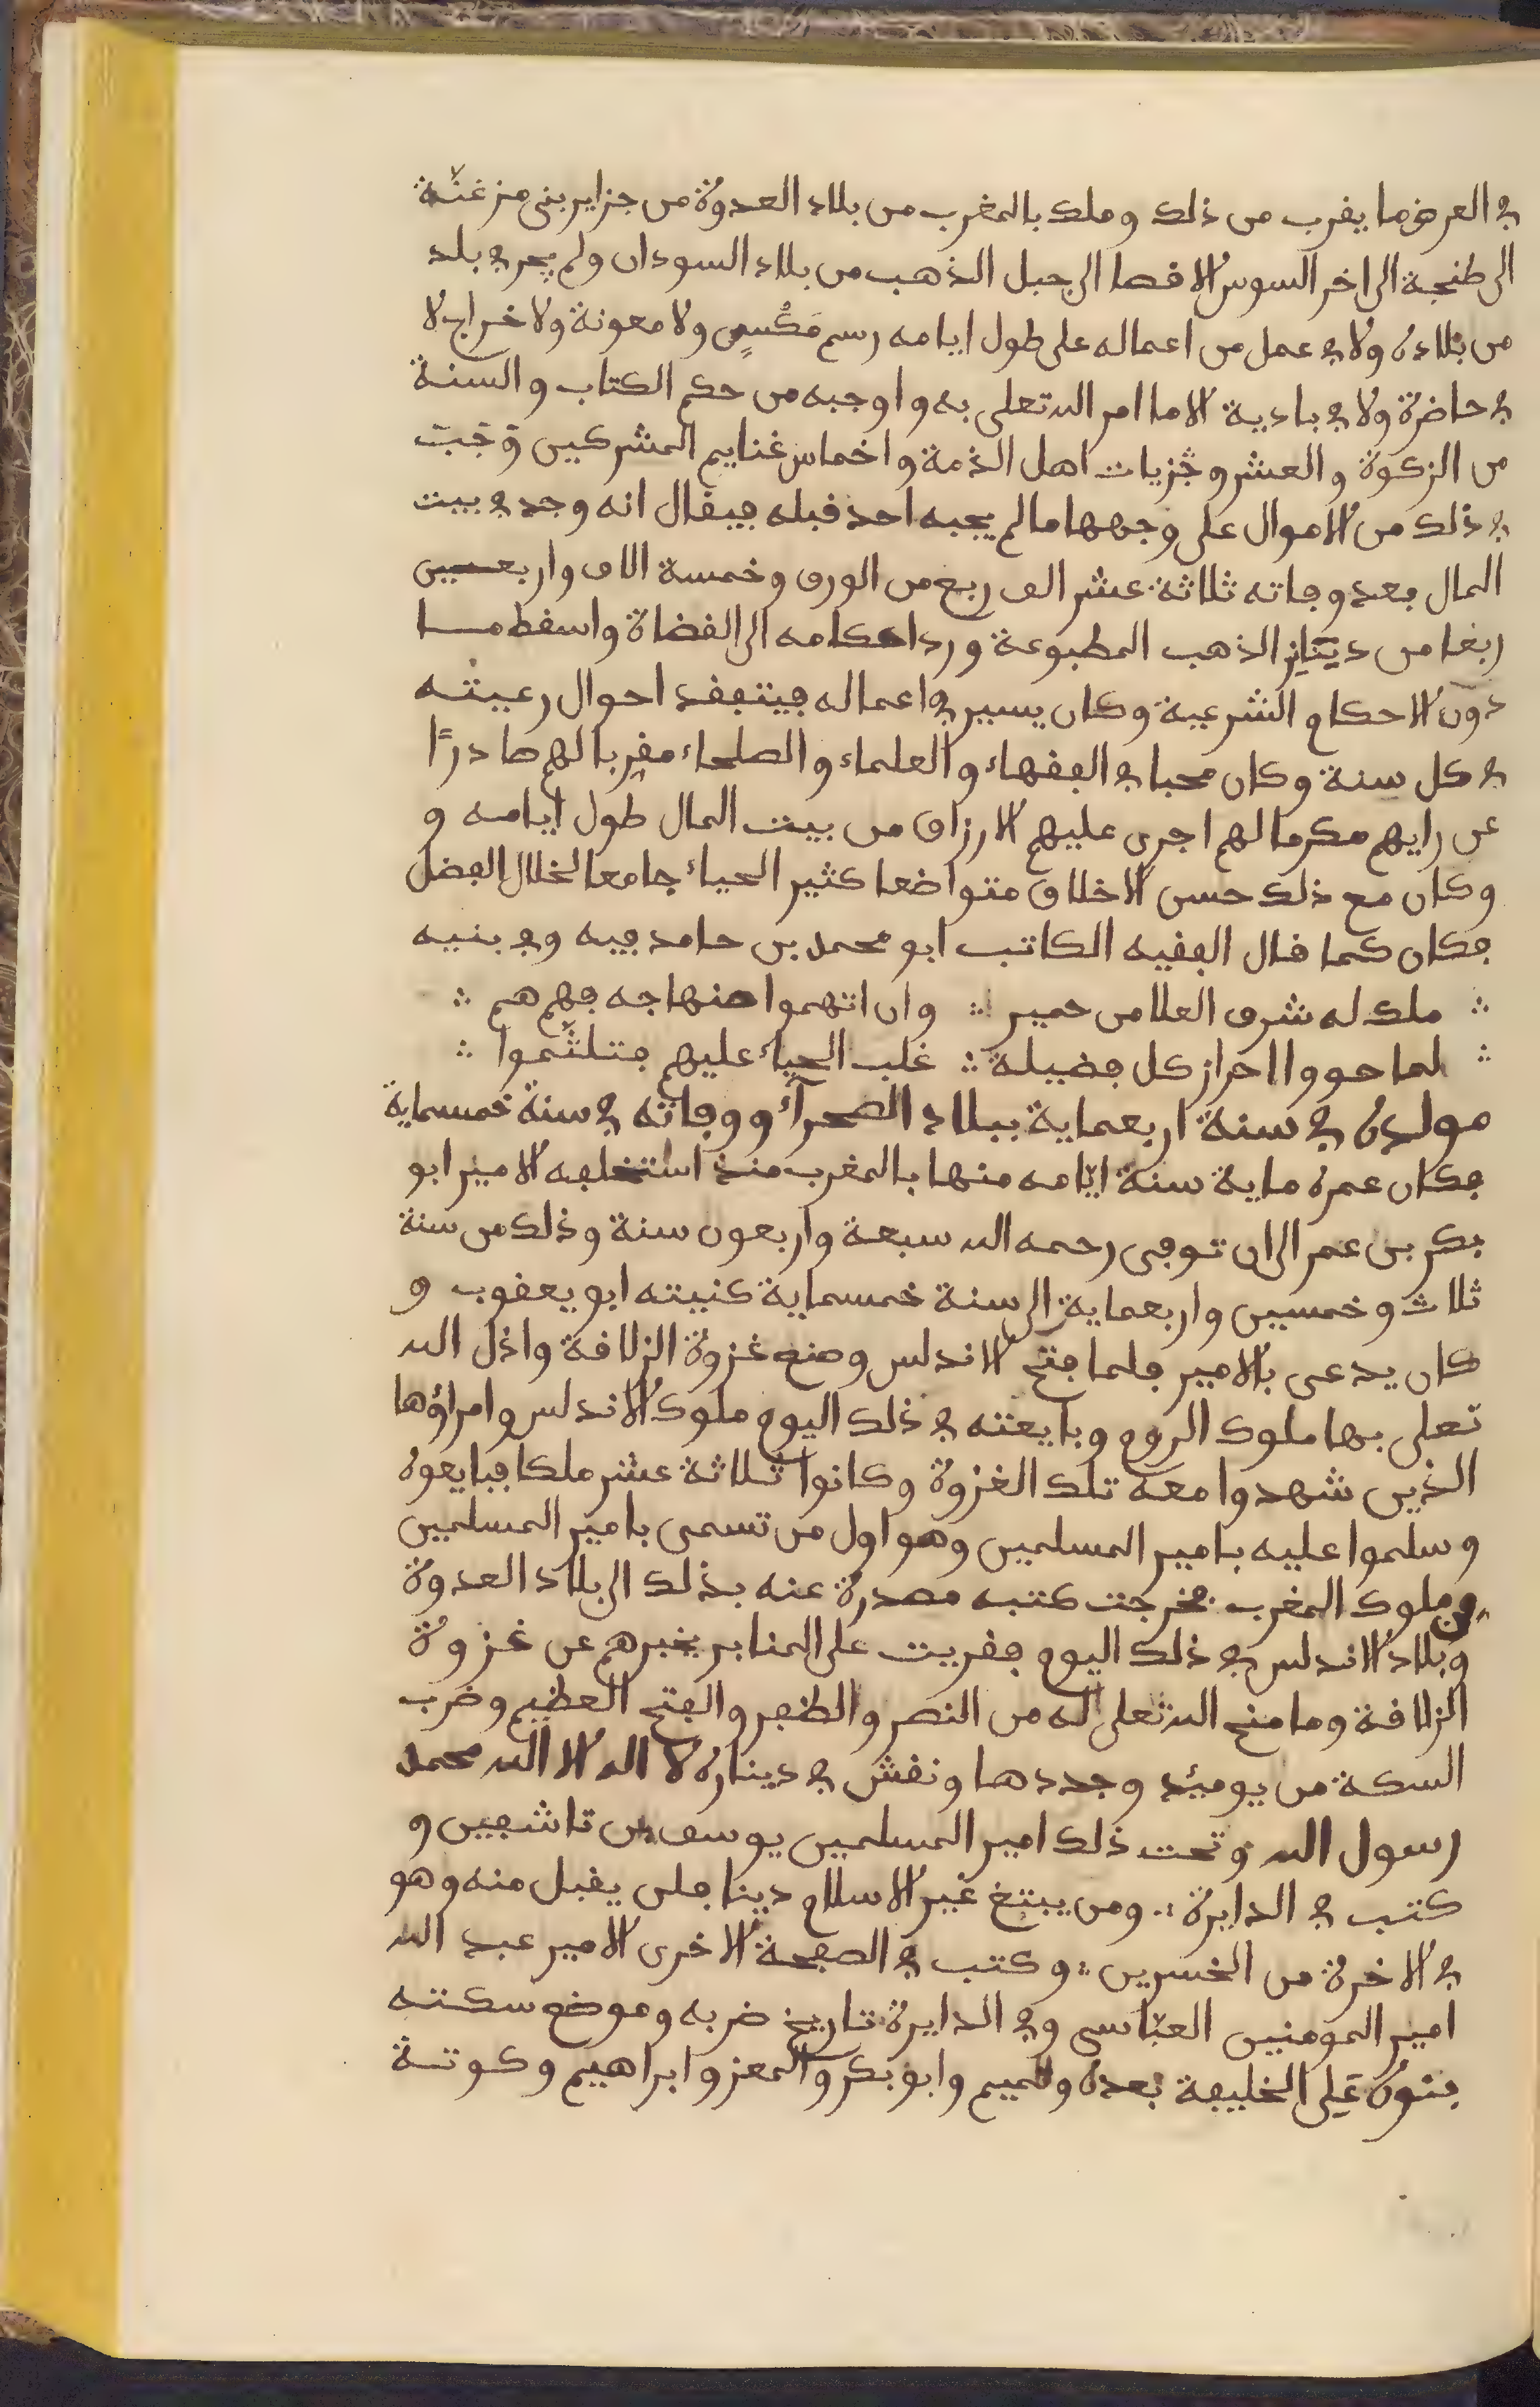 في العرض ما يقرب من ذلك وملك بالمغرب من بلاد العدوة من جزاير بني مزغنّة
الى طنجة الى اخر السوس الاقصا الى جبل الذهب من بلاد السودان ولم يجر في بلد
من بلاده ولا في عمل من اعماله على طول ايامه رسم مَكْسٍ ولا معونة ولا خراج لا
في حاضرة ولا في بادية الا ما امر الله تعلى به واوجبه من حكم الكتاب والسنة
من الزكوة والعشر وجزيات اهل الذمة واخماس غنايم المشركين وَجَبَ
في ذلك من الاموال على وجهها ما لم يجبه احد قبله فيقال انه وجد في بيت
المال بعد وفاته ثلاثة عشر الف ربع من الورق وخمسة الاف واربعين
ربعا من دنانير الذهب المطبوعة ورد احكامه الى القضاة واسقط ما
دون الاحكام الشرعية وكان يسير في اعماله فيتفقد احوال رعيته
في كل سنة وكان محبا في الفقهاء والعلماء والصلحاء مقربا لهم صادرًا
عن رايهم مكرما لهم اجرى عليهم الارزاق من بيت المال طول ايامه و
وكان مع ذلك حسن الاخلاق متواضعا كثير الحياء جامعا لخلال الفضل
فكان كما قال الفقيه الكاتب ابو محمد بن حامد فيه وفي بنيه
∴ ملك له شرف العلا من حمير ∴ وان اتهموا صنهاجه فهم هم ∴
∴ لما حووا احراز كل فضيلة ∴ غلب الحياء عليهم فتلثّموا ∴
مولده في سنة اربعماية ببلاد الصحرآء ووفاته في سنة خمسماية
فكان عمره ماية سنة ايّامه منها بالمغرب منذ استخلفه الامير ابو
بكر بن عمر الى ان توفى رحمه الله سبعة واربعون سنة وذلك من سنة
ثلاث وخمسين واربعماية الى سنة خمسماية كنيته ابو يعقوب و
كان يدعى بالامير فلما فتح الاندلس وصنع غزوة الزلاقة واذل الله
تعلى بها ملوك الروم وبايعته في ذلك اليوم ملوك الاندلس وامراؤها
الذين شهدوا معه تلك الغزوة وكانوا ثلاثة عشر ملكا فبايعوه
وسلموا عليه بامير المسلمين وهو اول من تسمى بامير المسلمين
من ملوك المغرب فخرجت كتبه مصدرة عنه بذلك الى بلاد العدوة
وبلاد الاندلس في ذلك اليوم فقريت على المنابر يخبرهم عن غزوة
الزلاقة وما منح الله تعلى له من النصر والظفر والفتح العظيم وضرب
السكة من يوميئد وجددها ونقش في ديناره لا اله الا الله محمد
رسول الله وتحت ذلك امير المسلمين يوسف بن تاشفين و
كتب في الدايرة ∴ ومن يبتغ غير الاسلام دينا فلن يقبل منه وهو
في الاخرة من الخسرين ∴ وكتب في الصفحة الاخرى الامير عبد الله
امير المومنين العبّاسى وفي الدايرة تاريخ ضربه وموضع سكته
بنوه عَلِى الخليفة بعده وتميم وابو بكر والمعز وابراهيم وكوتة